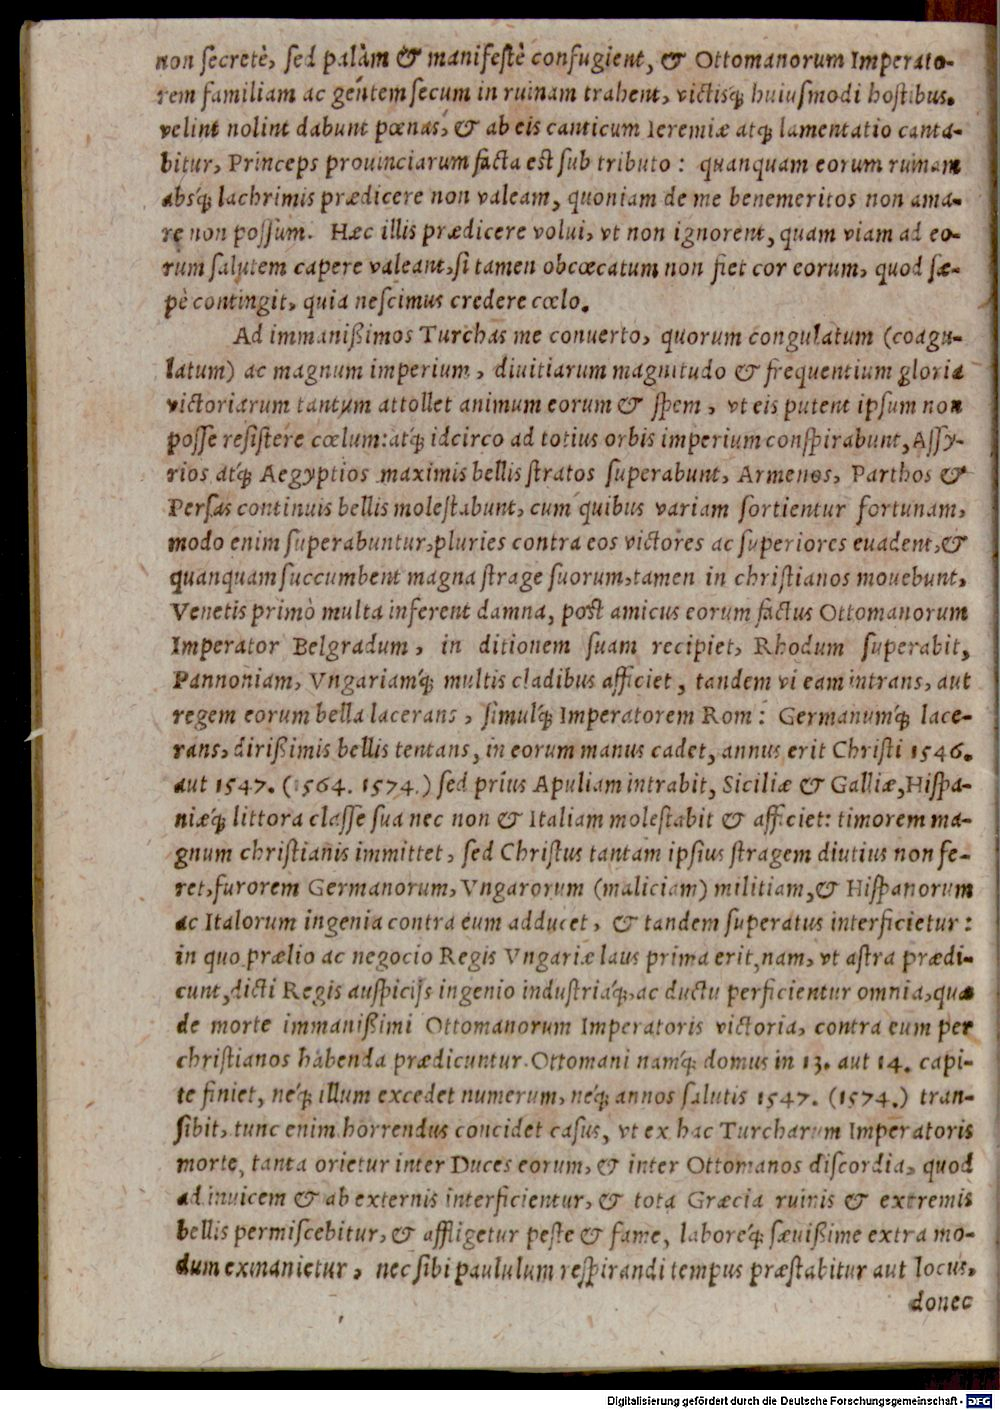 non ſecretè, ſed palàm & manifeſtè confugient, & Ottomanorum Imperato-
rem familiam ac gentem ſecum in ruinam trahent, victisq́; huiuſmodi hoſtibus.
velint nolint dabunt pœnas, & ab eis canticum Ieremiæ atq; lamentatio canta-
bitur, Princeps prouinciarum facta eſt ſub tributo: quanquam eorum ruinam
absq́; lachrimis prædicere non valeam, quoniam de me benemeritos non ama-
re non poſſum. Hæc illis prædicere volui, vt non ignorent, quam viam ad eo-
rum ſalutem capere valeant, ſi tamen obcœcatum non fiet cor eorum, quod ſæ-
pè contingit, quia neſcimus credere cœlo.
Ad immanißimos Turchas me conuerto, quorum congulatum (coagu-
latum) ac magnum imperium, diuitiarum magnitudo & frequentium gloria
victoriarum tantum attollet animum eorum & ſpem, vt eis putent ipſum non
poſſe reſiſtere cœlum: atq́; idcirco ad totius orbis imperium conſpirabunt, Aſſy-
rios atq́; Aegyptios maximis bellis ſtratos ſuperabunt, Armenos, Parthos &
Perſas continuis bellis moleſtabunt, cum quibus variam ſortientur fortunam,
modo enim ſuperabuntur, pluries contra eos victores ac ſuperiores euadent, &
quanquam ſuccumbent magna ſtrage ſuorum, tamen in chriſtianos mouebunt,
Venetis primò multa inferent damna, poſt amicus eorum factus Ottomanorum
Imperator Belgradum, in ditionem ſuam recipiet, Rhodum ſuperabit,
Pannoniam, Vngariamq́; multis cladibus afficiet, tandem vi eam intrans, aut
regem eorum bella lacerans, ſimulq́; Imperatorem Rom: Germanumq́; lace-
rans, dirißimis bellis tentans, in eorum manus cadet, annus erit Chriſti 1546.
aut 1547. (1564. 1574.) ſed prius Apuliam intrabit, Siciliæ & Galliæ, Hiſpa-
niæq́; littora claſſe ſua nec non & Italiam moleſtabit & afficiet: timorem ma-
gnum chriſtianis immittet, ſed Chriſtus tantam ipſius ſtragem diutius non fe-
ret, furorem Germanorum, Vngarorum (maliciam) militiam, & Hiſpanorum
ac Italorum ingenia contra eum adducet, & tandem ſuperatus interficietur:
in quo prælio ac negocio Regis Vngariæ laus prima erit, nam, vt aſtra prædi-
cunt, dicti Regis auſpicijs ingenio induſtriaq́;, ac ductu perficientur omnia, quæ
de morte immanißimi Ottomanorum Imperatoris victoria, contra eum per
chriſtianos habenda prædicuntur. Ottomani namq́; domus in 13. aut 14. capi-
te finiet, neq́; illum excedet numerum, neq́; annos ſalutis 1547. (1574.) tran-
ſibit, tunc enim horrendus concidet caſus, vt ex hac Turcharum Imperatoris
morte, tanta orietur inter Duces eorum, & inter Ottomanos diſcordia, quod
ad inuicem & ab externis interficientur, & tota Græcia ruinis & extremis
bellis permiſcebitur, & affligetur peſte & fame, laboreq́; ſæuißime extra mo-
dum exinanietur, nec ſibi paululum reſpirandi tempus præſtabitur aut locus,
donec
Digitalisierung gefördert durch die Deutsche Forschungsgemeinschaft - DFG